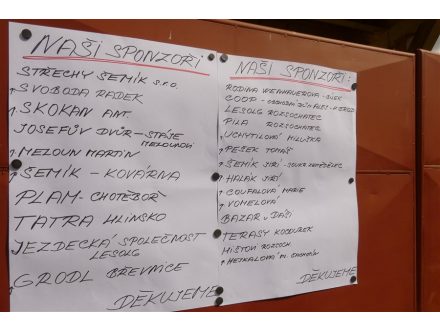 NAŠI SPONZOŘI
STŘECHY ŠEMÍK s.r.o.
SVOBODA RADEK
SKOKAN ANT.
JOSEFŮV DVŮR - STÁJE
MELOUNOVI
MELOUN MARTIN
ŠEMÍK - KOVÁRNA
PLAM - CHOTĚBOŘ
TATRA HLINSKO
JEZDECKÁ SPOLEČNOST
LESOLG
GRODL BŘEVNICE
DĚKUJEME
NAŠI SPONZOŘI:
RODINA
COOP -
LESOLG ROZSOCHATEC
PILA ROZSOCHATEC
UCHYTILOVÁ MILUŠKA
PEŠEK TOMÁŠ
ŠEMÍK JIŘÍ -
HALÁK JIŘÍ
COUFALOVÁ MARIE
VOMELOVÁ
BAZAR U DÁŠI
TERASY KOCOUREK
MÍSTOVI ROZSOCH.
HEJKALOVÁ M.
DĚKUJEME